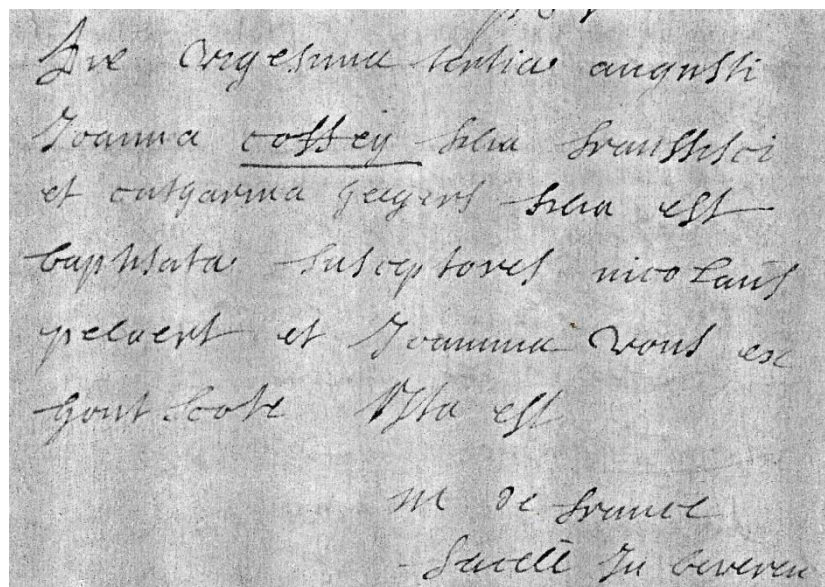 Die vigesima tertia augusti
Joanna coffey filia fransisci
et catharina geigers filia est
baptisata susceptores nicolaus
pelaert et Joanna vons ex
hontscote Ita est
m de france
in beveren